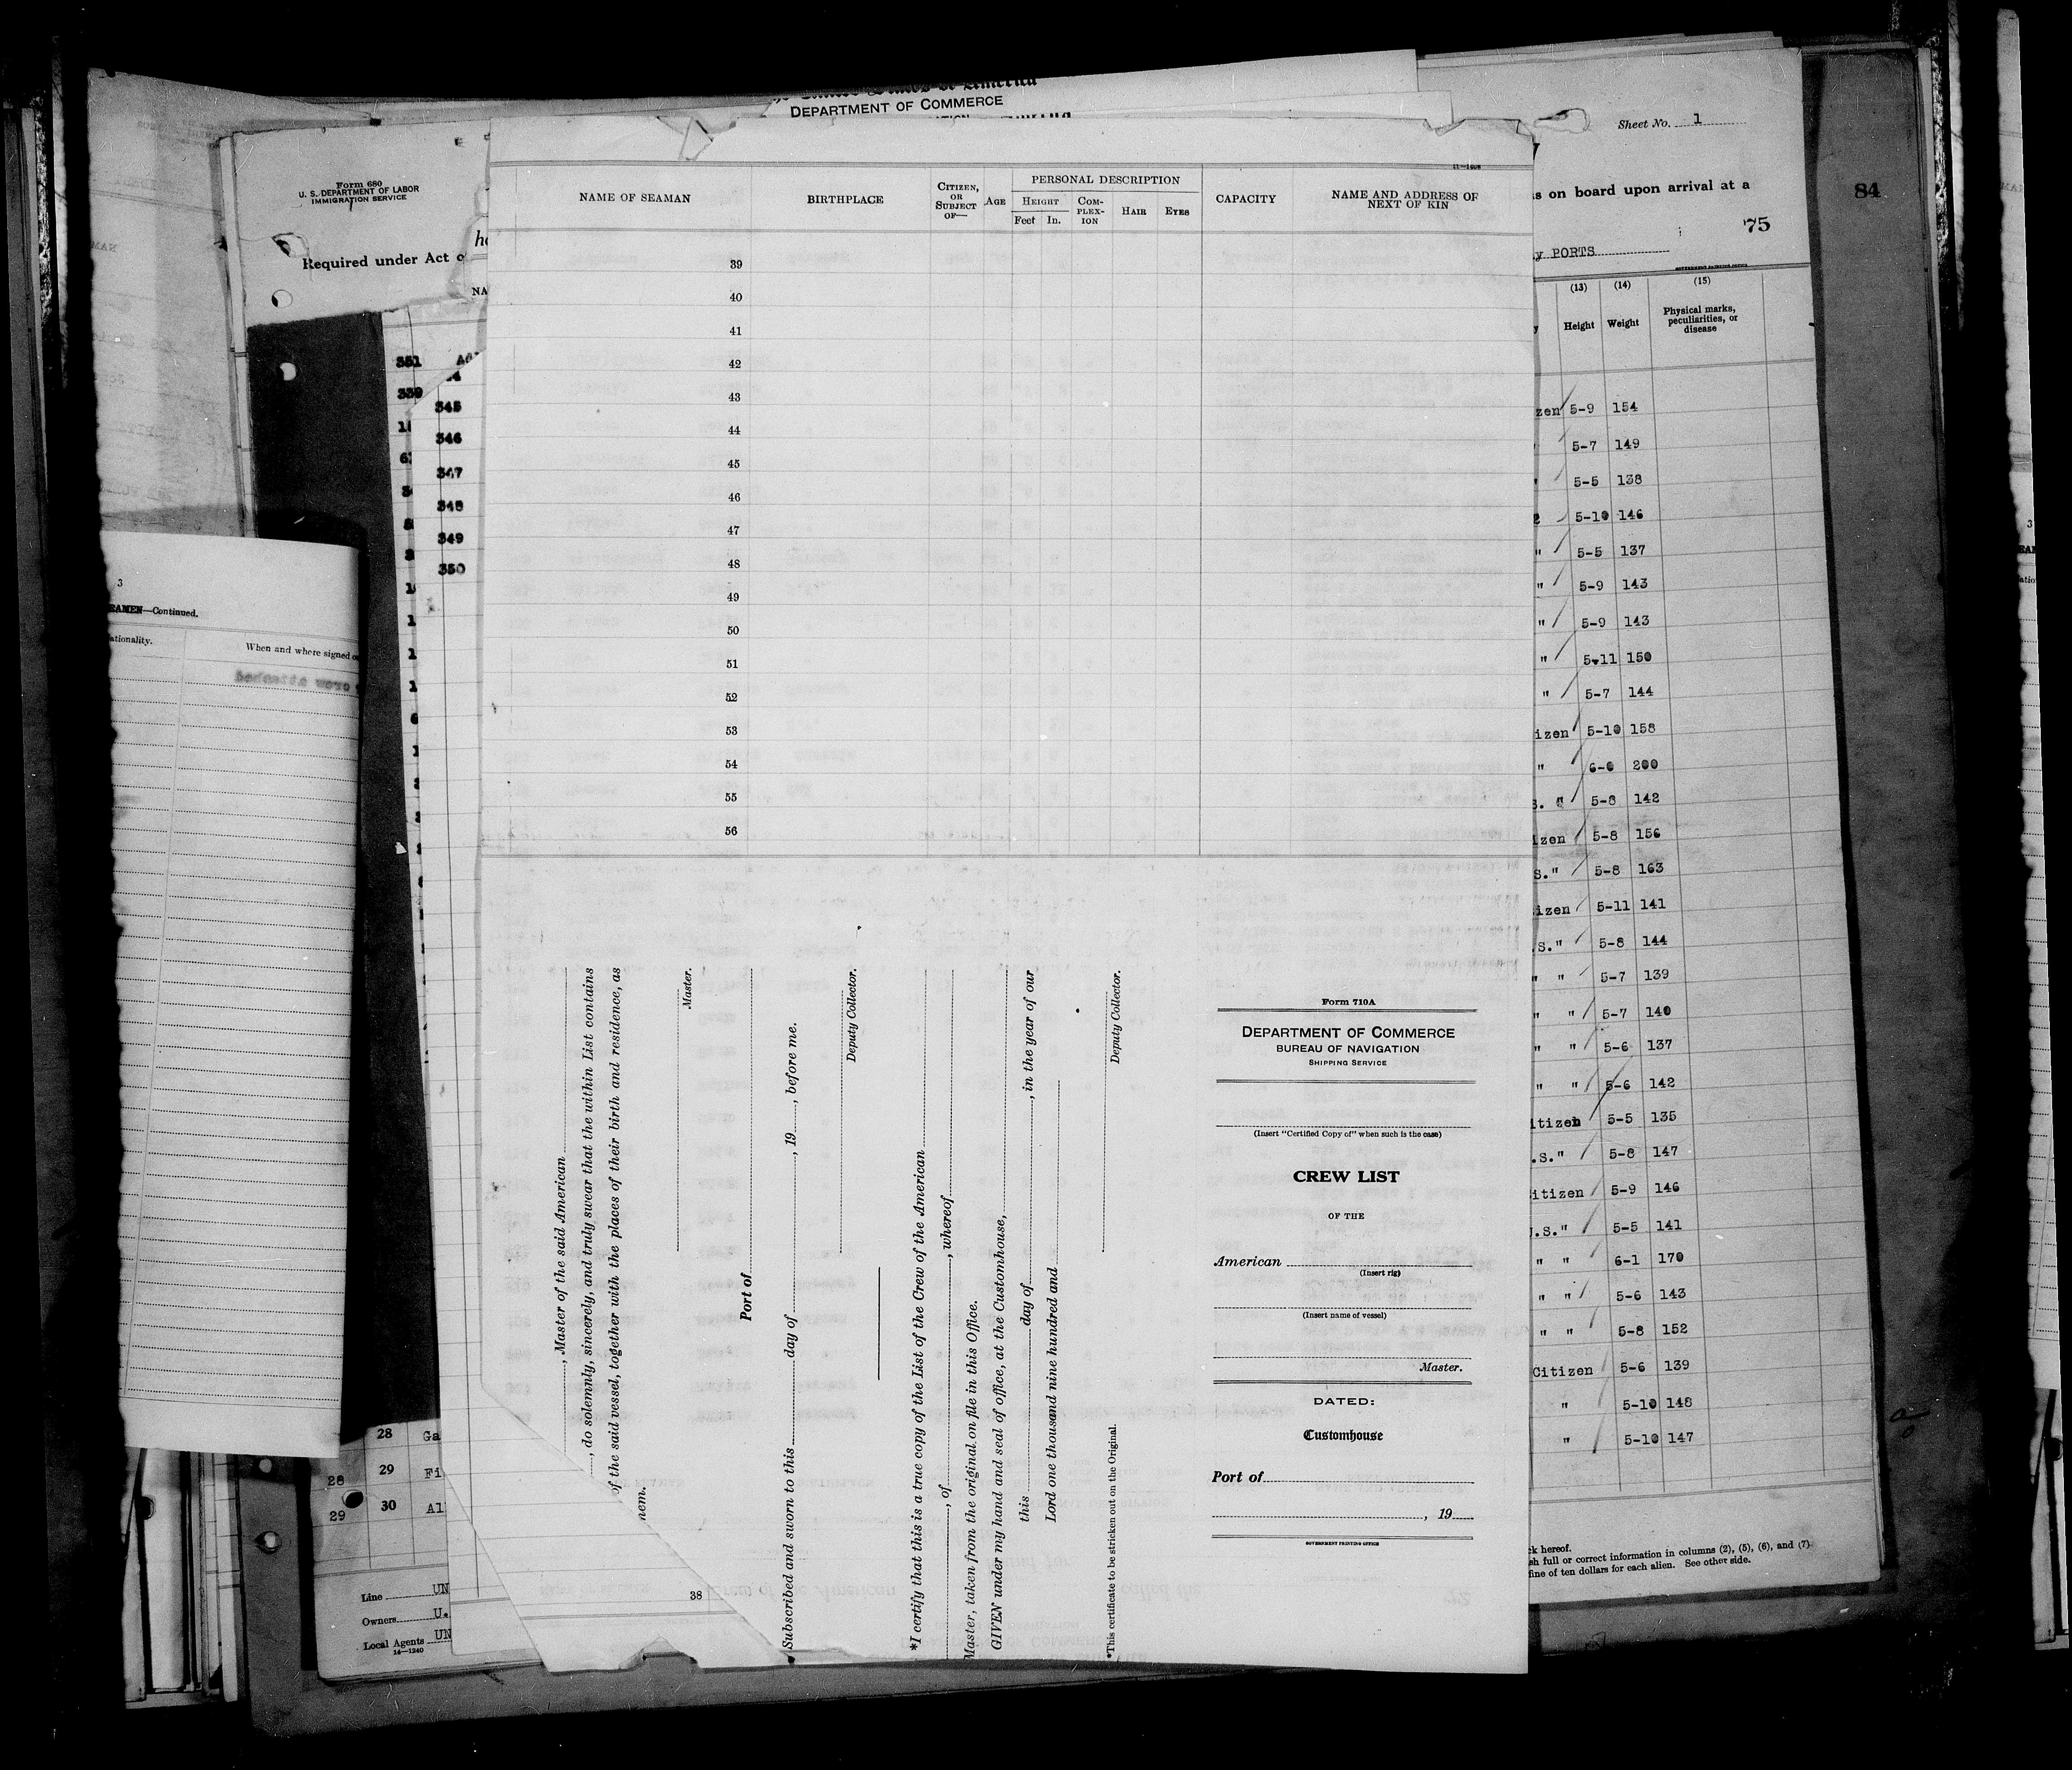 DEPARTMENT OF COMMERCE
Form 680
U. S. DEPARTMENT OF LABOR
IMMIGRATION SERVICE
Required under Act o
NA
351
339
345
346
347
348
349
350
3
EAMEN—Continued.
ationality.
When and where signed o
NAME OF SEAMAN
BIRTHPLACE
CITIZEN, OR SUBJECT OF—
AGE
PERSONAL DESCRIPTION
HEIGHT
Feet In.
COM-PLEX-ION
HAIR
EYES
CAPACITY
NAME AND ADDRESS OF NEXT OF KIN
39
40
41
42
43
44
45
46
47
48
49
50
51
52
53
54
55
56
38
, Master of the said American
, do solemnly, sincerely, and truly swear that the within List contains
of the said vessel, together with the places of their birth and residence, as
hem.
Master.
Port of
Subscribed and sworn to this day of , 19 , before me.
Deputy Collector.
*I certify that this is a true copy of the List of the Crew of the American
, of , whereof
Master, taken from the original on file in this Office.
GIVEN under my hand and seal of office, at the Customhouse,
this day of , in the year of our
Lord one thousand nine hundred and
Deputy Collector.
*This certificate to be stricken out on the Original.
Form 710A
DEPARTMENT OF COMMERCE
BUREAU OF NAVIGATION
SHIPPING SERVICE
(Insert "Certified Copy of" when such is the case)
CREW LIST
OF THE
American
(Insert rig)
(Insert name of vessel)
Master.
DATED:
Customhouse
Port of
, 19
GOVERNMENT PRINTING OFFICE
Sheet No. 1
s on board upon arrival at a
84
75
y PORTS
GOVERNMENT PRINTING OFFICE
(13) (14) (15)
Height Weight Physical marks, peculiarities, or disease
zen 5-9 154
5-7 149
5-5 138
5-10 146
" 5-5 137
" 5-9 143
" 5-9 143
" 5-11 150
" 5-7 144
izen 5-10 158
" 6-0 200
S. " 5-8 142
izen 5-8 156
S." 5-8 163
izen 5-11 141
.S." 5-8 144
" " 5-7 139
" " 5-7 140
" " 5-6 137
" " 5-6 142
itizen 5-5 135
.S." 5-8 147
itizen 5-9 146
.S." 5-5 141
" " 6-1 170
" " 5-6 143
" " 5-8 152
Citizen 5-6 139
" 5-10 148
" 5-10 147
k hereof.
sh full or correct information in columns (2), (5), (6), and (7)
fine of ten dollars for each alien. See other side.
28 Ga
28 29 Fi
29 30 Al
Line UN
Owners U.
Local Agents UN
14—1240